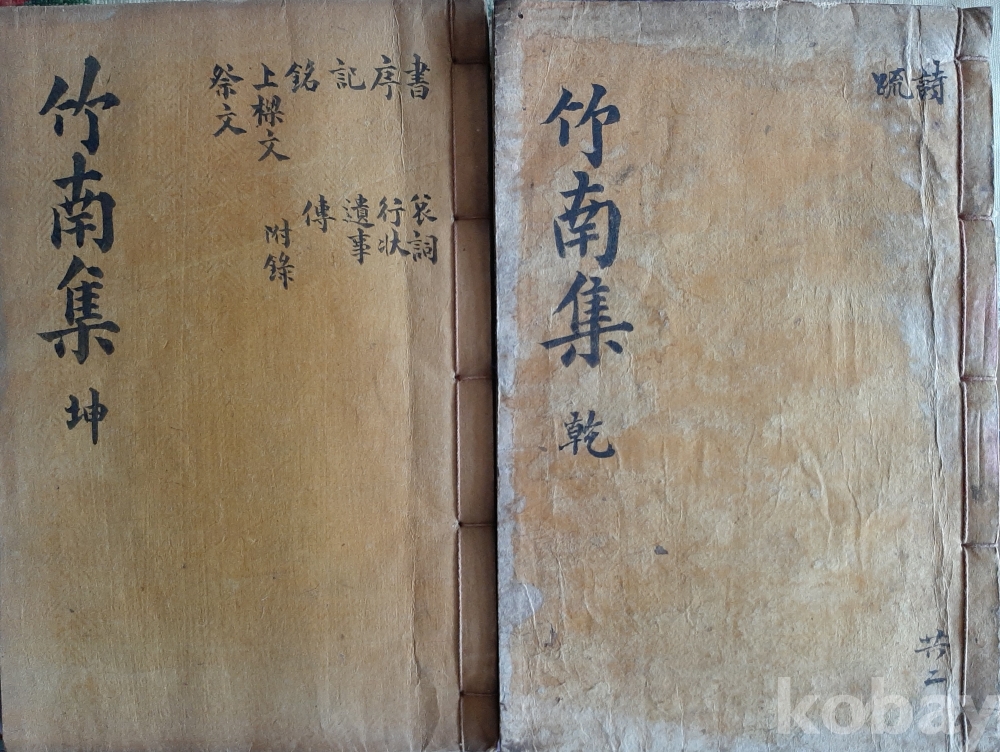 詩
疏
竹南集 乾
共二
書
序
記
銘
上樑文
祭文
哀詞
行狀
遺事
傳
附錄
竹南集 坤
kobay